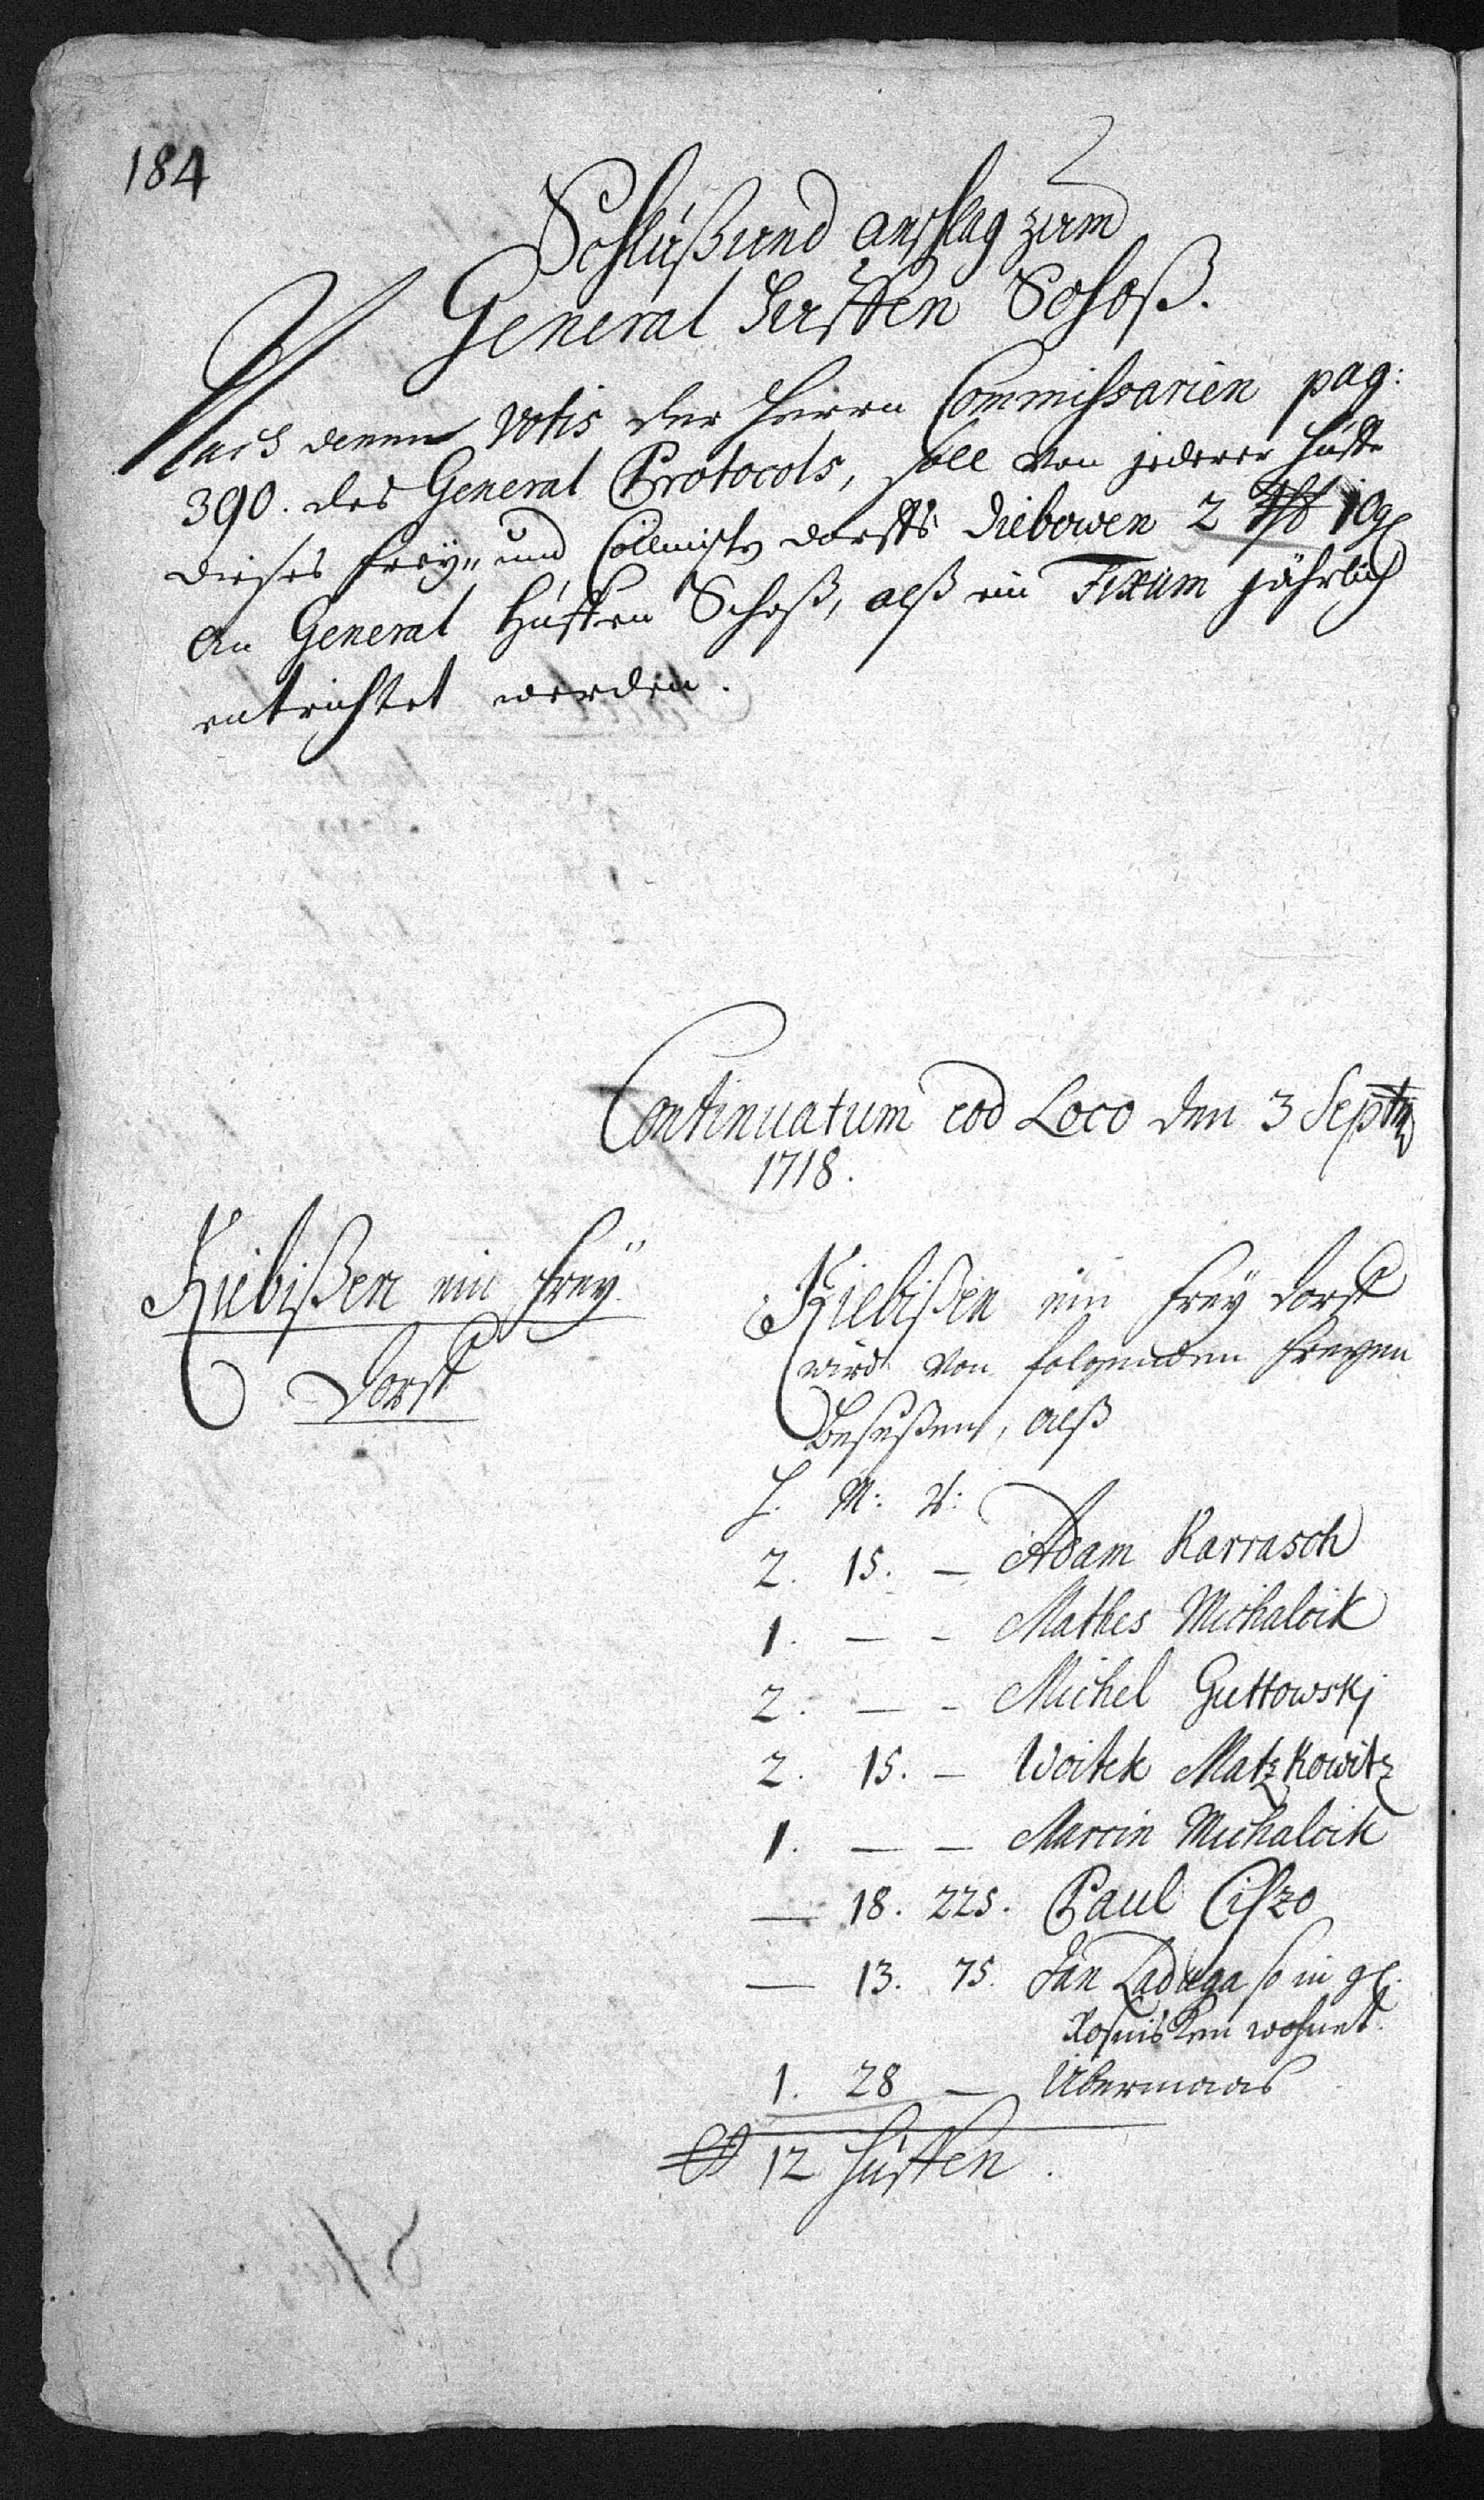 184
Schluß und anschlag zum
General Huffen Schoß.
Nach denen Votis der Herrn Commissarien pag:
390. des General Protocols, soll von jederer Huffe
dieses Frey- und Cöllmisch dorffs Diebowen 2 10 gl
an General Huffen Schoß, alß ein Fixum jährlich
entrichtet werden.
Continuatum eod Loco den 3 Septbr
1718.
Kiebißen ein Frey
Dorff
Kiebißen ein Frey Dorff
wird von folgenden Freyen
Beseßen, alß
H. M: R:
2. 15. — Adam Karrasch
1. — — Mathes Michalcik
2. — — Michel Guttowskj
2. 15. — Woitek Matzkowitz
1. — — Marcin Michalcik
— 18. 225. Paul Ciszo
— 13. 75. Jan Ladaga so in gl.
Rosinsken wohnet.
1. 28 — Übermaas
12 Huffen.